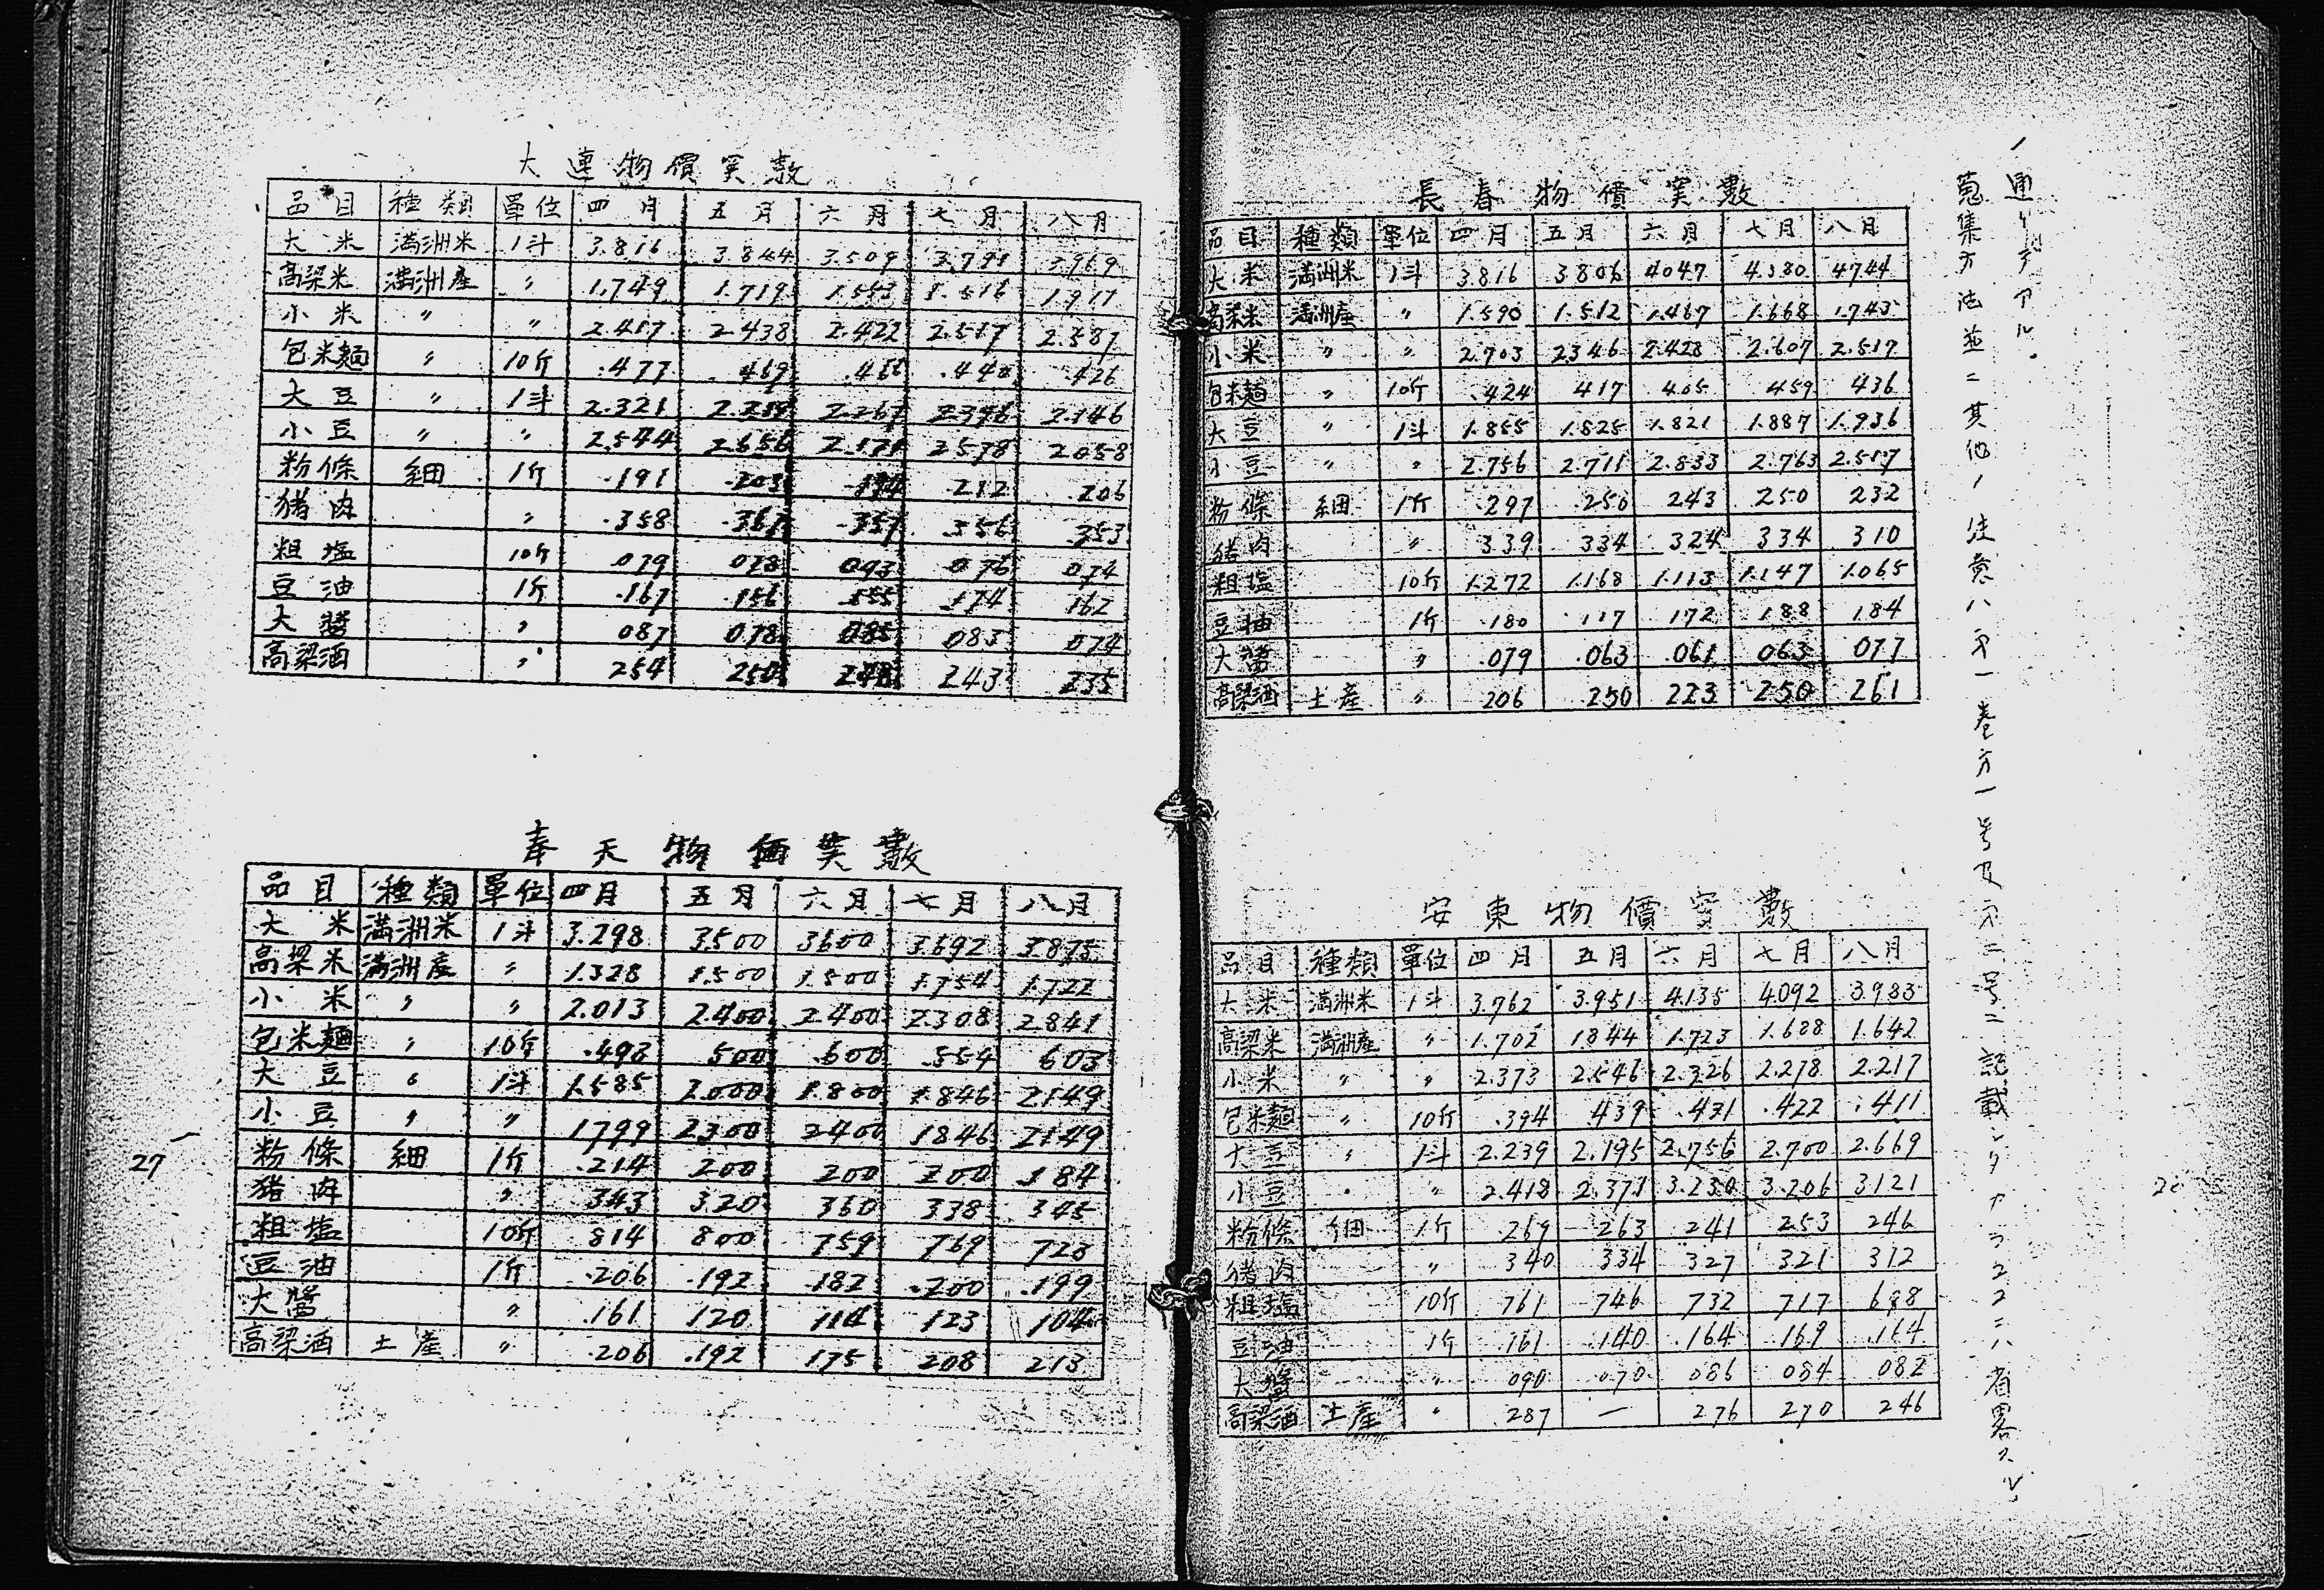 ノ通リデアル。
蒐集方法並ニ其他ノ注意ハ第一巻第一号及第二号ニ記載シタカラココニハ省略スル
長春物價実數
品目 種類 單位 四月 五月 六月 七月 八月
大米 満洲米 1斗 3.816 3.806 4.047 4.380 4.744
高粱米 満洲産 〃 1.590 1.512 1.467 1.668 1.743
小米 〃 〃 2.703 2.346 2.428 2.607 2.517
包米麺 〃 10斤 .424 417 405 459 436
大豆 〃 1斗 1.855 1.825 1.821 1.887 1.936
小豆 〃 〃 2.756 2.711 2.833 2.763 2.517
粉條 細 1斤 .297 .250 243 250 232
猪肉 〃 339 334 324 334 310
粗塩 10斤 1.272 1.168 1.113 1.147 1.065
豆油 1斤 .180 172 188 184
大醤 〃 .079 .063 .061 063 077
高粱酒 土産 〃 206 250 223 250 261
安東物價実數
品目 種類 單位 四月 五月 六月 七月 八月
大米 満洲米 1斗 3.762 3.951 4.135 4.092 3.983
高粱米 満洲産 〃 1.702 1.844 1.723 1.688 1.642
小米 〃 〃 2.373 2.546 2.326 2.278 2.217
包米麺 〃 10斤 .394 439 .431 .422 .411
大豆 〃 1斗 2.239 2.195 2.756 2.700 2.669
小豆 〃 〃 2.418 2.371 3.230 3.206 3.121
粉條 細 1斤 269 263 241 253 246
猪肉 〃 340 334 327 321 312
粗塩 10斤 761 746 732 717 698
豆油 1斤 .161 .140 .164 .169 .164
大醤 〃 090 070 086 084 082
高粱酒 土産 〃 .287 — 276 270 246
大連物價実數
品目 種類 單位 四月 五月 六月 七月 八月
大米 満洲米 1斗 3.816 3.844 3.509 3.791 3.969
高粱米 満洲産 〃 1.749 1.719 1.553 1.516 1.911
小米 〃 〃 2.417 2.438 2.422 2.517 2.587
包米麺 〃 10斤 .477 .469 .466 .440 .426
大豆 〃 1斗 2.321 2.267 2.396 2.146
小豆 〃 〃 2.544 2.656 2.578 2.058
粉條 細 1斤 .191 .203 .194 .212 .206
猪肉 〃 .358 .367 .357 .356 .353
粗塩 10斤 079 078 093 076 074
豆油 1斤 .167 .156 .155 .174 162
大醤 〃 087 078 085 083 074
高粱酒 〃 254 250 248 243 235
奉天物価実數
品目 種類 單位 四月 五月 六月 七月 八月
大米 満洲米 1斗 3.298 3.500 3.600 3.692 3.875
高粱米 満洲産 〃 1.328 1.500 1.500 1.754 1.722
小米 〃 〃 2.013 2.400 2.400 2.308 2.841
包米麺 〃 10斤 .492 500 .600 .554 603
大豆 〃 1斗 1.585 2.000 1.800 1.846 2.149
小豆 〃 〃 1.799 2.300 2.400 1.846 2.149
粉條 細 1斤 .214 200 200 200 184
猪肉 〃 343 320 360 338 345
粗塩 10斤 814 800 759 769 728
豆油 1斤 .206 .192 .182 .200 .199
大醤 〃 .161 120 114 123 104
高粱酒 土産 〃 .206 .192 175 208 213
27